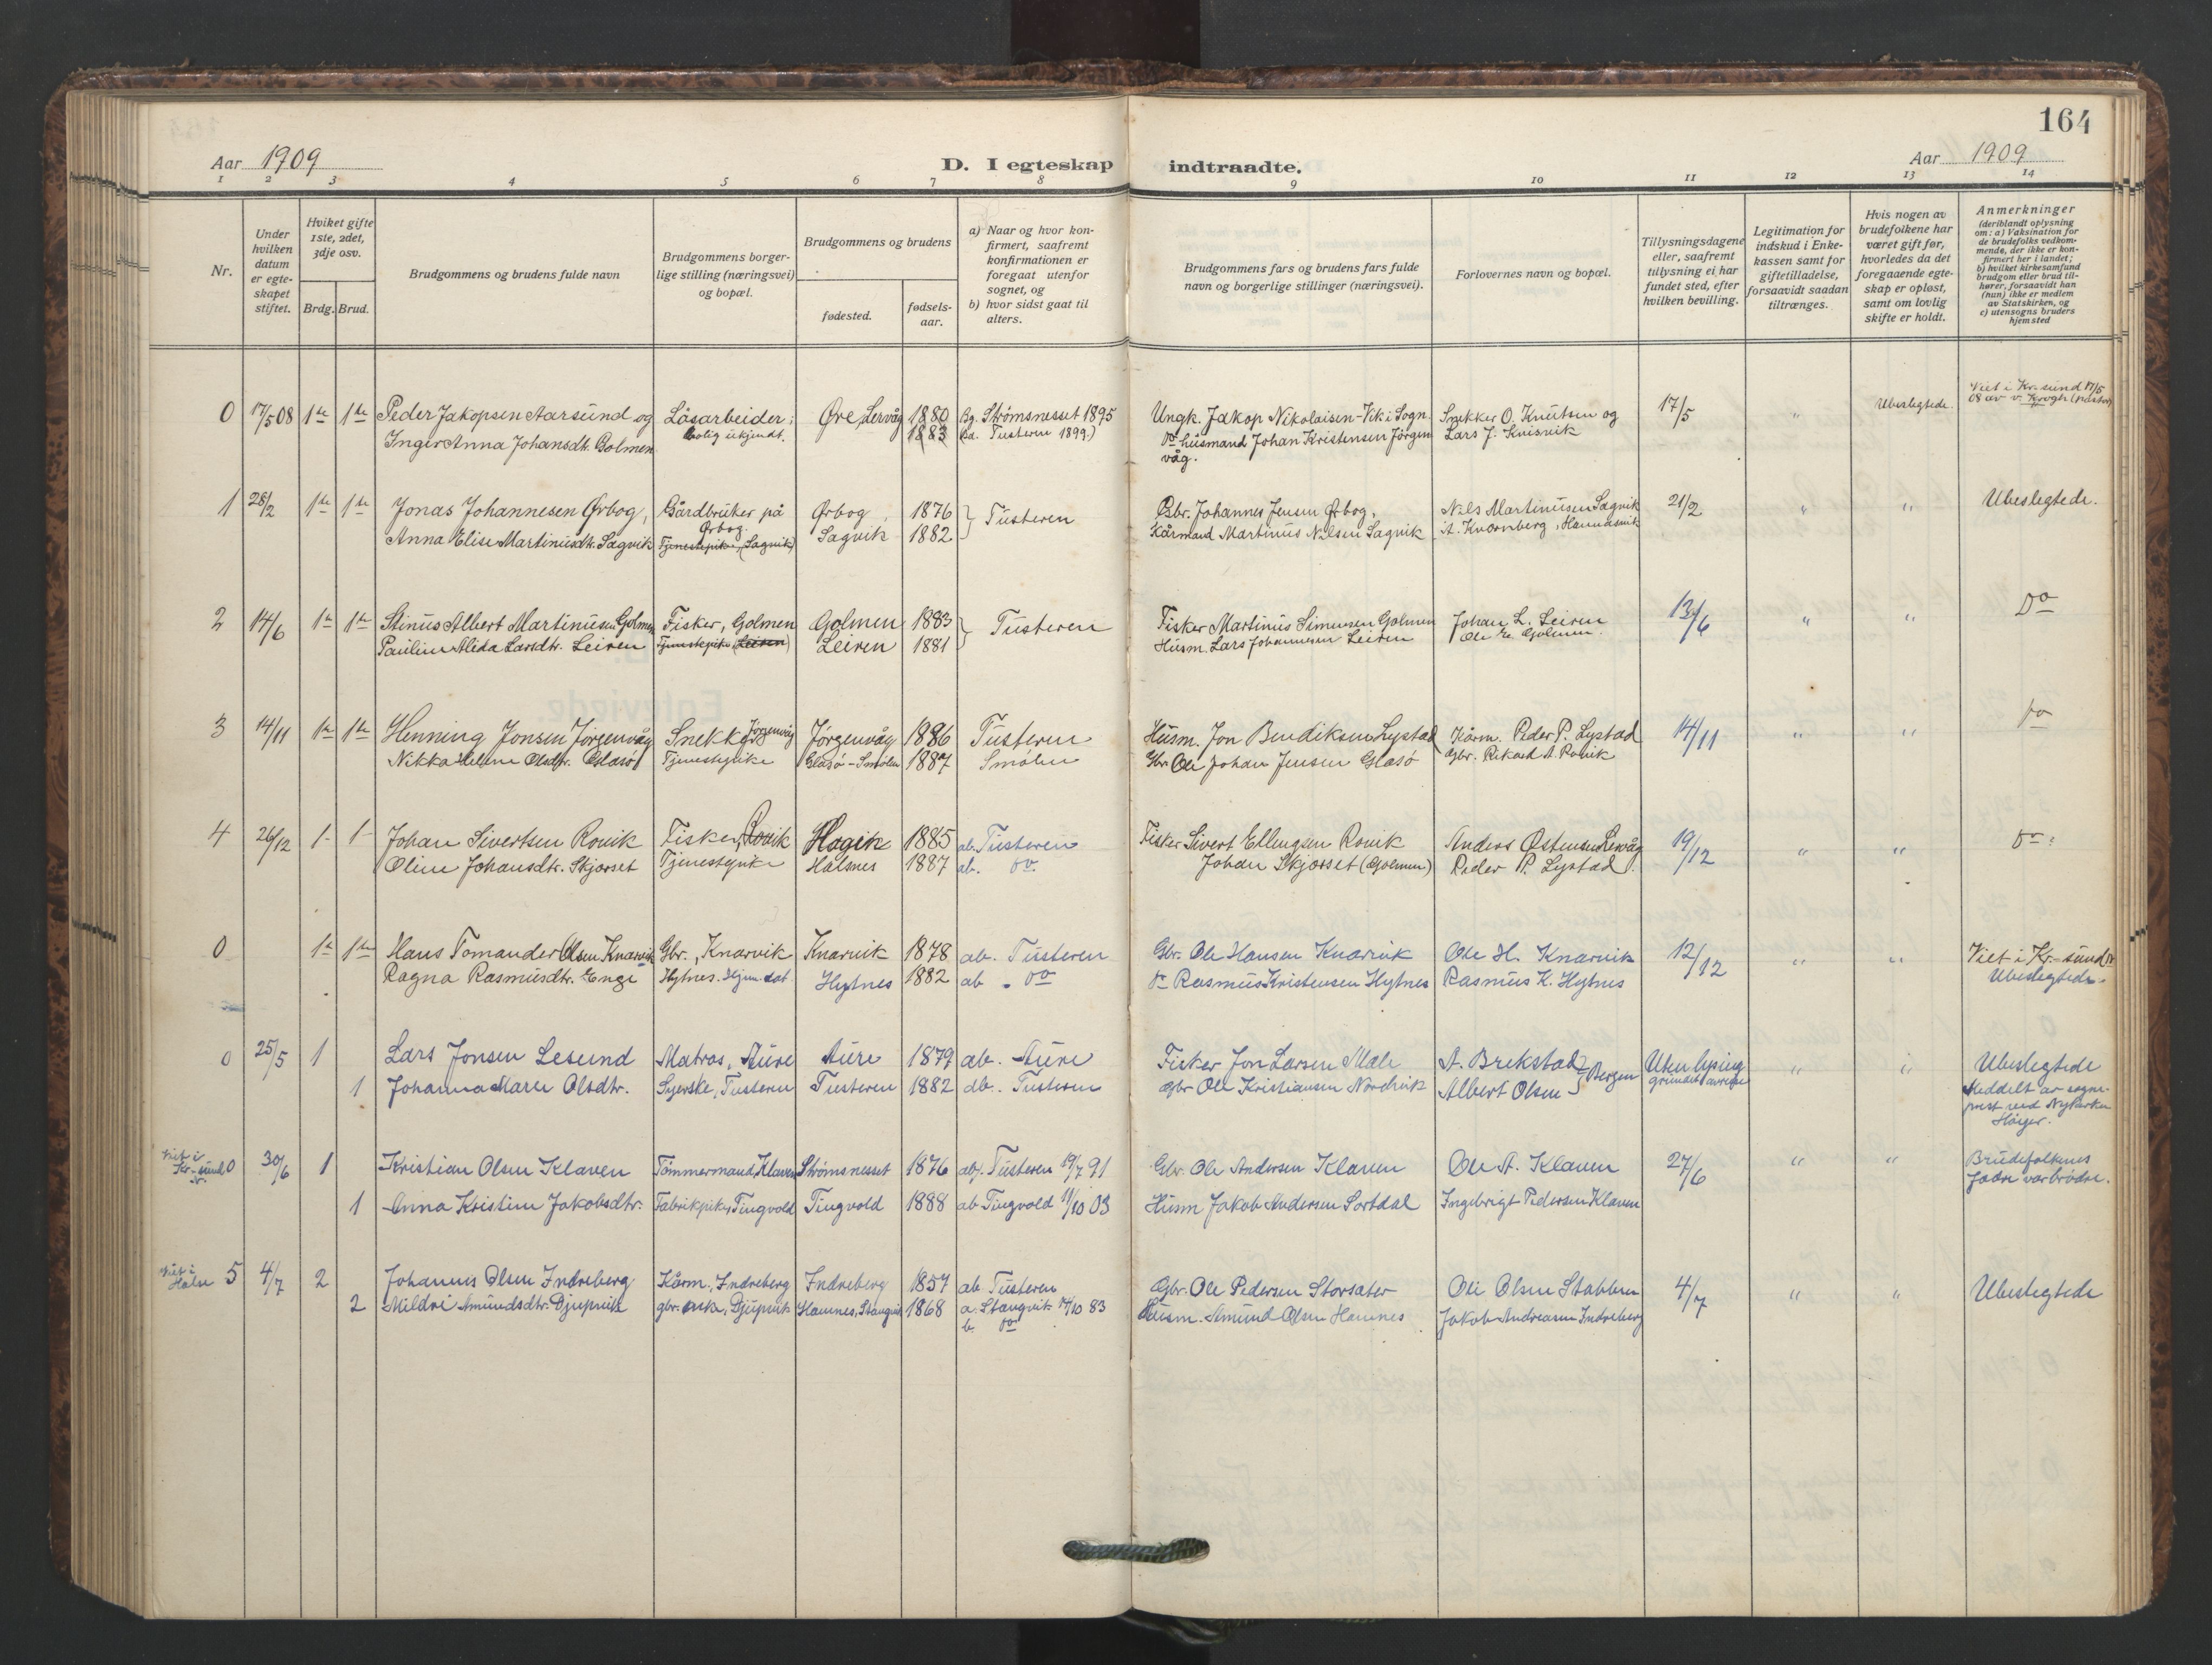 164
Aar 1909
D. I egteskap indtraadte.
Aar 1909
1 2 3 4 5 6 7 8 9 10 11 12 13 14
Nr.
Under hvilken datum er egteskapet stiftet.
Hviket gifte 1ste, 2det, 3dje osv.
Brdg. Brud.
Brudgommens og brudens fulde navn
Brudgommens borgerlige stilling (næringsvei) og bopæl.
Brudgommens og brudens
fødested.
fødselsaar.
a) Naar og hvor konfirmert, saafremt konfirmationen er foregaat utenfor sognet, og
b) hvor sidst gaat til alters.
Brudgommens fars og brudens fars fulde navn og borgerlige stillinger (næringsvei).
Forlovernes navn og bopæl.
Tillysningsdagene eller, saafremt tillysning ei har fundet sted, efter hvilken bevilling.
Legitimation for indskud i Enkekassen samt for giftetilladelse, forsaavidt saadan tiltrænges.
Hvis nogen av brudefolkene har været gift før, hvorledes da det foregaaende egteskap er opløst, samt om lovlig skifte er holdt.
Anmerkninger (deriblandt oplysning om: a) Vaksination for de brudefolks vedkommende, der ikke er konfirmert her i landet; b) hvilket kirkesamfund brudgom eller brud tilhører, forsaavidt han (hun) ikke er medlem av Statskirken, og c) utensogns bruders hjemsted
0 17/5 08 1ste 1ste Peder Jakopsen Aarsund og Løsarbeider; Øre 1880 Bg. Strømsnesset 1895 Ungk. Jakop Nikolaisen-Vik i Sogn. Snekker O. Knutsen og 17/5 " Ubeslegtede. Viet i Kr.sund 17/5
Inger Anna Johansdtr. Golmen bolig ukjendt. Lervåg 1883 Bd. Tusteren 1899.) do husmand Johan Kristensen Jørgen Lars J. Knisvik 08 av v. Krogh (pastor)
våg.
1 28/2 1ste 1ste Jonas Johannesen Ørbog, Gårdbruker på Ørbog, 1876 } Tusteren Gbr. Johannes Jensen Ørbog. Nils Martinusen Sagvik 21/2 " " Ubeslegtede.
Ørbog.
Anna Elise Martinusdtr. Sagvik Tjenestepike (Sagvik) Sagvik 1882 Kårmand Martinus Nilsen Sagvik
2 14/6 1ste 1ste Stinus Albert Martinusen Golmen Fisker, Golmen Golmen 1883 } Tusteren Fisker Martinus Simensen Golmen Johan L. Leiren 13/6 " " Do
Pauline Alida Larsdtr. Leiren Tjenestepike (Leiren) Leiren 1881 Husm. Lars Johannesen Leiren Ole E. Golmen.
3 14/11 1ste 1ste Henning Jonsen Jørgenvåg Snekker Jørgenvåg Jørgenvåg 1886 Tusteren Husm. Jon Bendiksen Lystad Kårm. Peder P. Lystad 14/11 " " do
Nikka Helene Olsdtr. Glasø Tjenestepike Glasø-Smølen 1887 Smølen Gbr. Ole Johan Jensen Glasø Gbr. Rikard A. Rovik
4 26/12 1- 1- Johan Sivertsen Rovik Fisker, Rovik 1885 ab. Tusteren Fisker Sivert Ellingsen Rovik Anders Østensen Lervåg 19/12 " " do
Oline Johansdtr. Skjørset Tjenestepike Halsnes 1887 ab. do Johan Skjørset (Golmen) Peder P. Lystad.
0 1ste 1ste Hans Tomander Olsen Knarvik Gbr., Knarvik Knarvik 1878 ab. Tusteren Gbr. Ole Hansen Knarvik Ole H. Knarvik 12/12 " " Viet i Kr.-sund N
Ragna Rasmusdtr. Enge Hytnes. Hytnes 1882 ab. do do Rasmus Kristensen Hytnes Rasmus K. Hytnes Ubeslegtede.
0 25/5 1 Lars Jonsen Lesund Matros, Aure Aure 1879 ab. Aure Fisker Jon Larsen Male A. Brekstad } Bergen Uten lysing " " Ubeslegtede
1 Johanna Marie Olsdtr. Syerske, Tusteren Tusteren 1882 ab. Tusteren Gbr Ole Kristiansen Nordvik Albert Olsen grundet avreise Meddelt av sogneprest ved Nykirken
Høyer.
Viet i Kr-sund N. 0 30/6 1 Kristian Olsen Klaven Tømmermand, Klaven Strømsnesset 1876 ab. Tusteren 19/7 91 Gbr. Ole Andersen Klaven Ole A. Klaven 27/6 " " Brudefolkenes
1 Anna Kristine Jakobsdtr. Fabrikpike, Tingvold Tingvold 1888 ab Tingvold 11/10 03 Husm Jakob Andersen Sortdal Ingebrigt Pedersen Klaven fædre var brødre.
Viet i Halse 5 4/7 2 Johannes Olsen Indreberg Kårm., Indreberg Indreberg 1857 ab Tusteren Gbr. Ole Pedersen Storsæter Ole Olsen Stabben 4/7 " " Ubeslegtede
2 Mildri Amundsdtr. Djupvik gbr. enke, Djupvik Hamnes, Stangvik 1868 a. Stangvik 14/10 83 Husm. Amund Olsen Hamnes Jakob Andreasen Indreberg
b. do